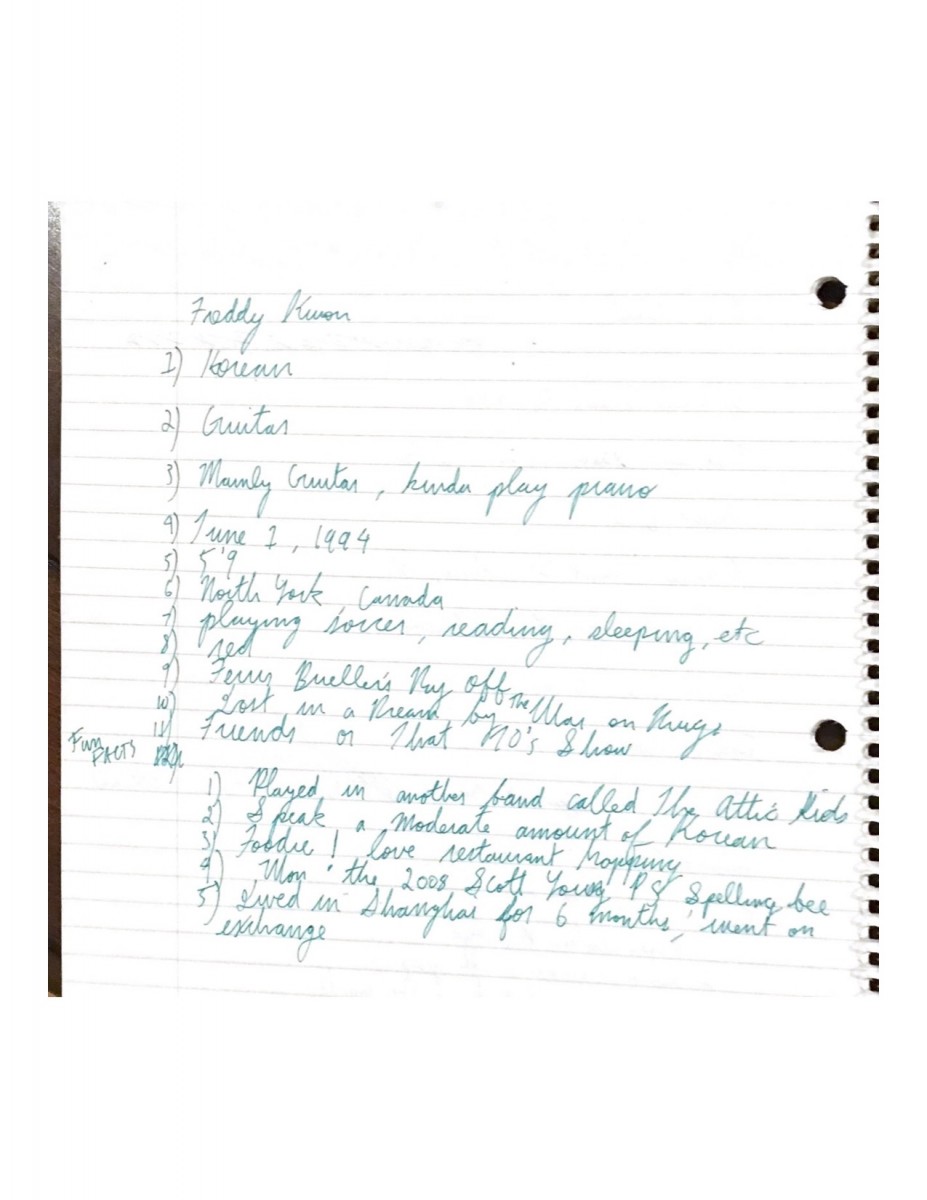 Freddy Kwon
1) Korean
2) Guitar
3) Mainly Guitar, kinda play piano
4) June 1, 1994
5) 5'9
6) North York, Canada
7) playing soccer, reading, sleeping, etc
8) red
9) Ferris Bueller's Day Off
10) Lost in a Dream by The War on Drugs
11) Friends or That 70's Show
Fun FACTS 12)
1) Played in another band called The Attic Kids
2) Speak a moderate amount of Korean
3) Foodie! love restaurant hopping
4) Won the 2008 Scott Young PS Spelling bee
5) Lived in Shanghai for 6 months, went on
exchange